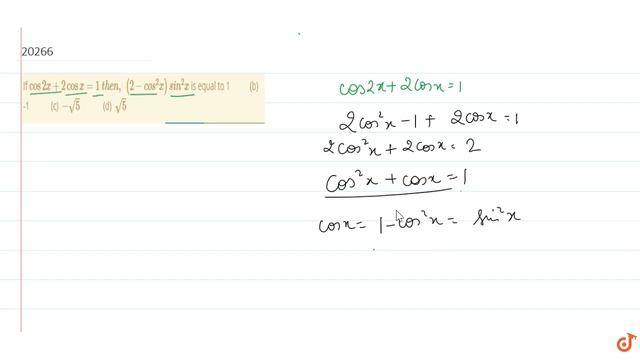 20266
If cos 2x + 2 cos x = 1 then, (2 − cos²x) sin²x is equal to 1 (b)
-1 (c) −√5 (d) √5
cos2x + 2cosx = 1
2cos²x − 1 + 2cosx = 1
2cos²x + 2cosx = 2
cos²x + cosx = 1
cosx = 1 − cos²x = sin²x